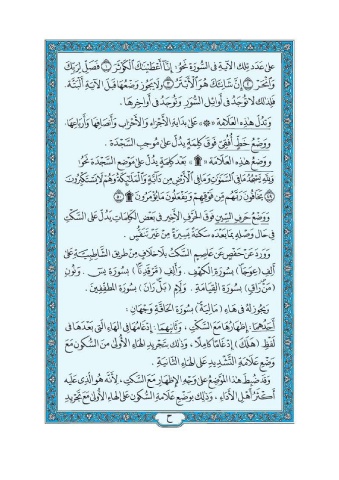 عَلَى عَدَدِ تِلْكَ الآيَةِ فِي السُّورَةِ نَحْوُ: إِنَّا أَعْطَيْنَاكَ الْكَوْثَرَ ١ فَصَلِّ لِرَبِّكَ
وَانْحَرْ ٢ إِنَّ شَانِئَكَ هُوَ الْأَبْتَرُ ٣ وَلَا يَجُوزُ وَضْعُهَا قَبْلَ الآيَةِ أَلْبَتَّةَ.
فَلِذَلِكَ لَا تُوجَدُ فِي أَوَائِلِ السُّوَرِ وَتُوجَدُ فِي أَوَاخِرِهَا.
وَتَدُلُّ هَذِهِ العَلَامَةُ « ۞ » عَلَى بِدَايَةِ الأَجْزَاءِ وَالأَحْزَابِ وَأَنْصَافِهَا وَأَرْبَاعِهَا.
وَوَضْعُ خَطٍّ أُفُقِيٍّ فَوْقَ كَلِمَةٍ يَدُلُّ عَلَى مُوجِبِ السَّجْدَةِ.
وَوَضْعُ هَذِهِ العَلَامَةِ « ۩ » بَعْدَ كَلِمَةٍ يَدُلُّ عَلَى مَوْضِعِ السَّجْدَةِ نَحْوُ:
وَلِلَّهِ يَسْجُدُ مَا فِي السَّمَاوَاتِ وَمَا فِي الْأَرْضِ مِن دَابَّةٍ وَالْمَلَائِكَةُ وَهُمْ لَا يَسْتَكْبِرُونَ
٤٩ يَخَافُونَ رَبَّهُم مِّن فَوْقِهِمْ وَيَفْعَلُونَ مَا يُؤْمَرُونَ ۩ ٥٠
وَوَضْعُ حَرْفِ السِّينِ فَوْقَ الحَرْفِ الأَخِيرِ فِي بَعْضِ الكَلِمَاتِ يَدُلُّ عَلَى السَّكْتِ
فِي حَالِ وَصْلِهِ بِمَا بَعْدَهُ سَكْتَةً يَسِيرَةً مِنْ غَيْرِ تَنَفُّسٍ.
وَوَرَدَ عَنْ حَفْصٍ عَنْ عَاصِمٍ السَّكْتُ بِلَا خِلَافٍ مِنْ طَرِيقِ الشَّاطِبِيَّةِ عَلَى
أَلِفِ (عِوَجَا) بِسُورَةِ الكَهْفِ. وَأَلِفِ (مَرْقَدِنَا) بِسُورَةِ يس. وَنُونِ
(مَنْ رَاقٍ) بِسُورَةِ القِيَامَةِ. وَلَامِ (بَلْ رَانَ) بِسُورَةِ المُطَفِّفِينَ.
وَيَجُوزُ لَهُ فِي هَاءِ (مَالِيَهْ) بِسُورَةِ الحَاقَّةِ وَجْهَانِ:
أَحَدُهُمَا: إِظْهَارُهَا مَعَ السَّكْتِ، وَثَانِيهِمَا: إِدْغَامُهَا فِي الهَاءِ الَّتِي بَعْدَهَا فِي
لَفْظِ (هَلَكَ) إِدْغَامًا كَامِلًا، وَذَلِكَ بِتَجْرِيدِ الهَاءِ الأُولَى مِنَ السُّكُونِ مَعَ
وَضْعِ عَلَامَةِ التَّشْدِيدِ عَلَى الهَاءِ الثَّانِيَةِ.
وَقَدْ ضُبِطَ هَذَا المَوْضِعُ عَلَى وَجْهِ الإِظْهَارِ مَعَ السَّكْتِ، لِأَنَّهُ هُوَ الَّذِي عَلَيْهِ
أَكْثَرُ أَهْلِ الأَدَاءِ، وَذَلِكَ بِوَضْعِ عَلَامَةِ السُّكُونِ عَلَى الهَاءِ الأُولَى مَعَ تَجْرِيدِ
ح